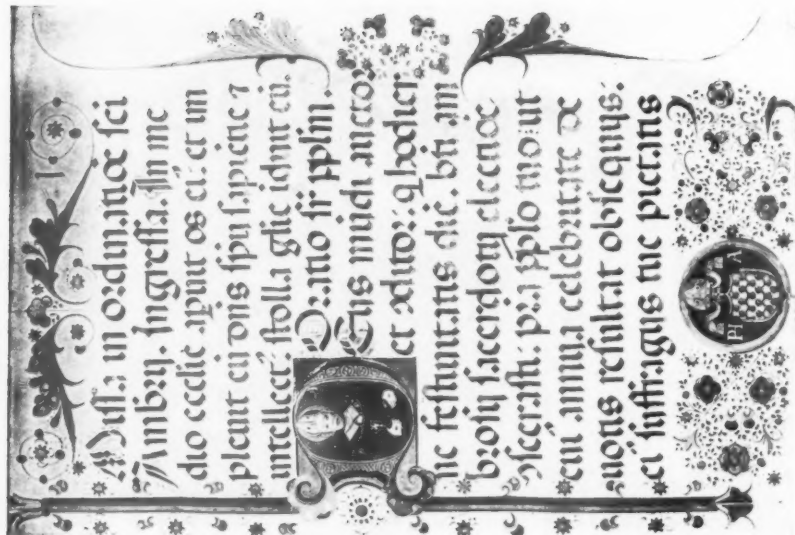 Missa in ordinatioe sci
Ambrij. Ingressa. In me
dio ecclie apuit os ei. et im
pleuit eu dns spu sapientie ⁊
intellect. stolla glie iduit eu.
Oratio sr pplm.
Etnis mudi aucto
et oditor: q hodier
ne festiuitatis die. bti am
brosij sacerdotij electioe
ↄsecrasti: pra pplo tuo: ut
cui annua celebritate de
uotis resultat obsequijs:
ei suffragijs tue pietatis
PH A